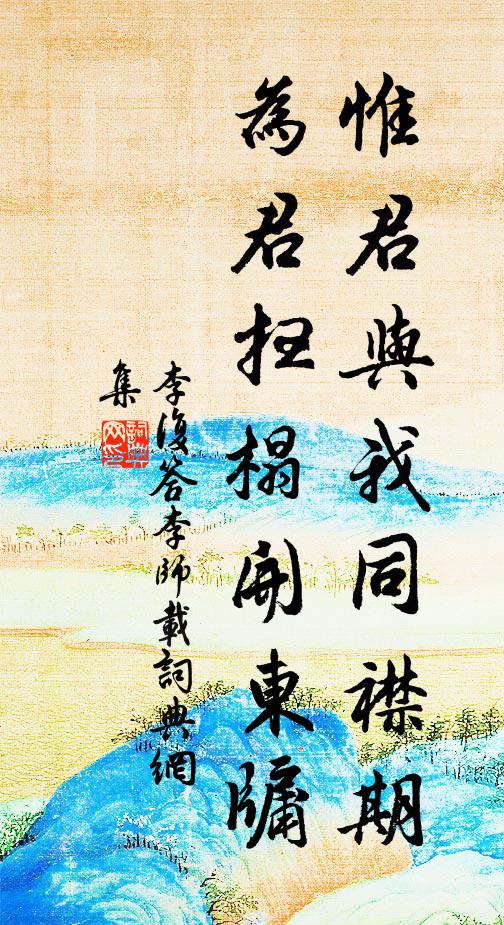 惟君與我同襟期
為君扫榻開東牖
李復答李師載詞典網
集